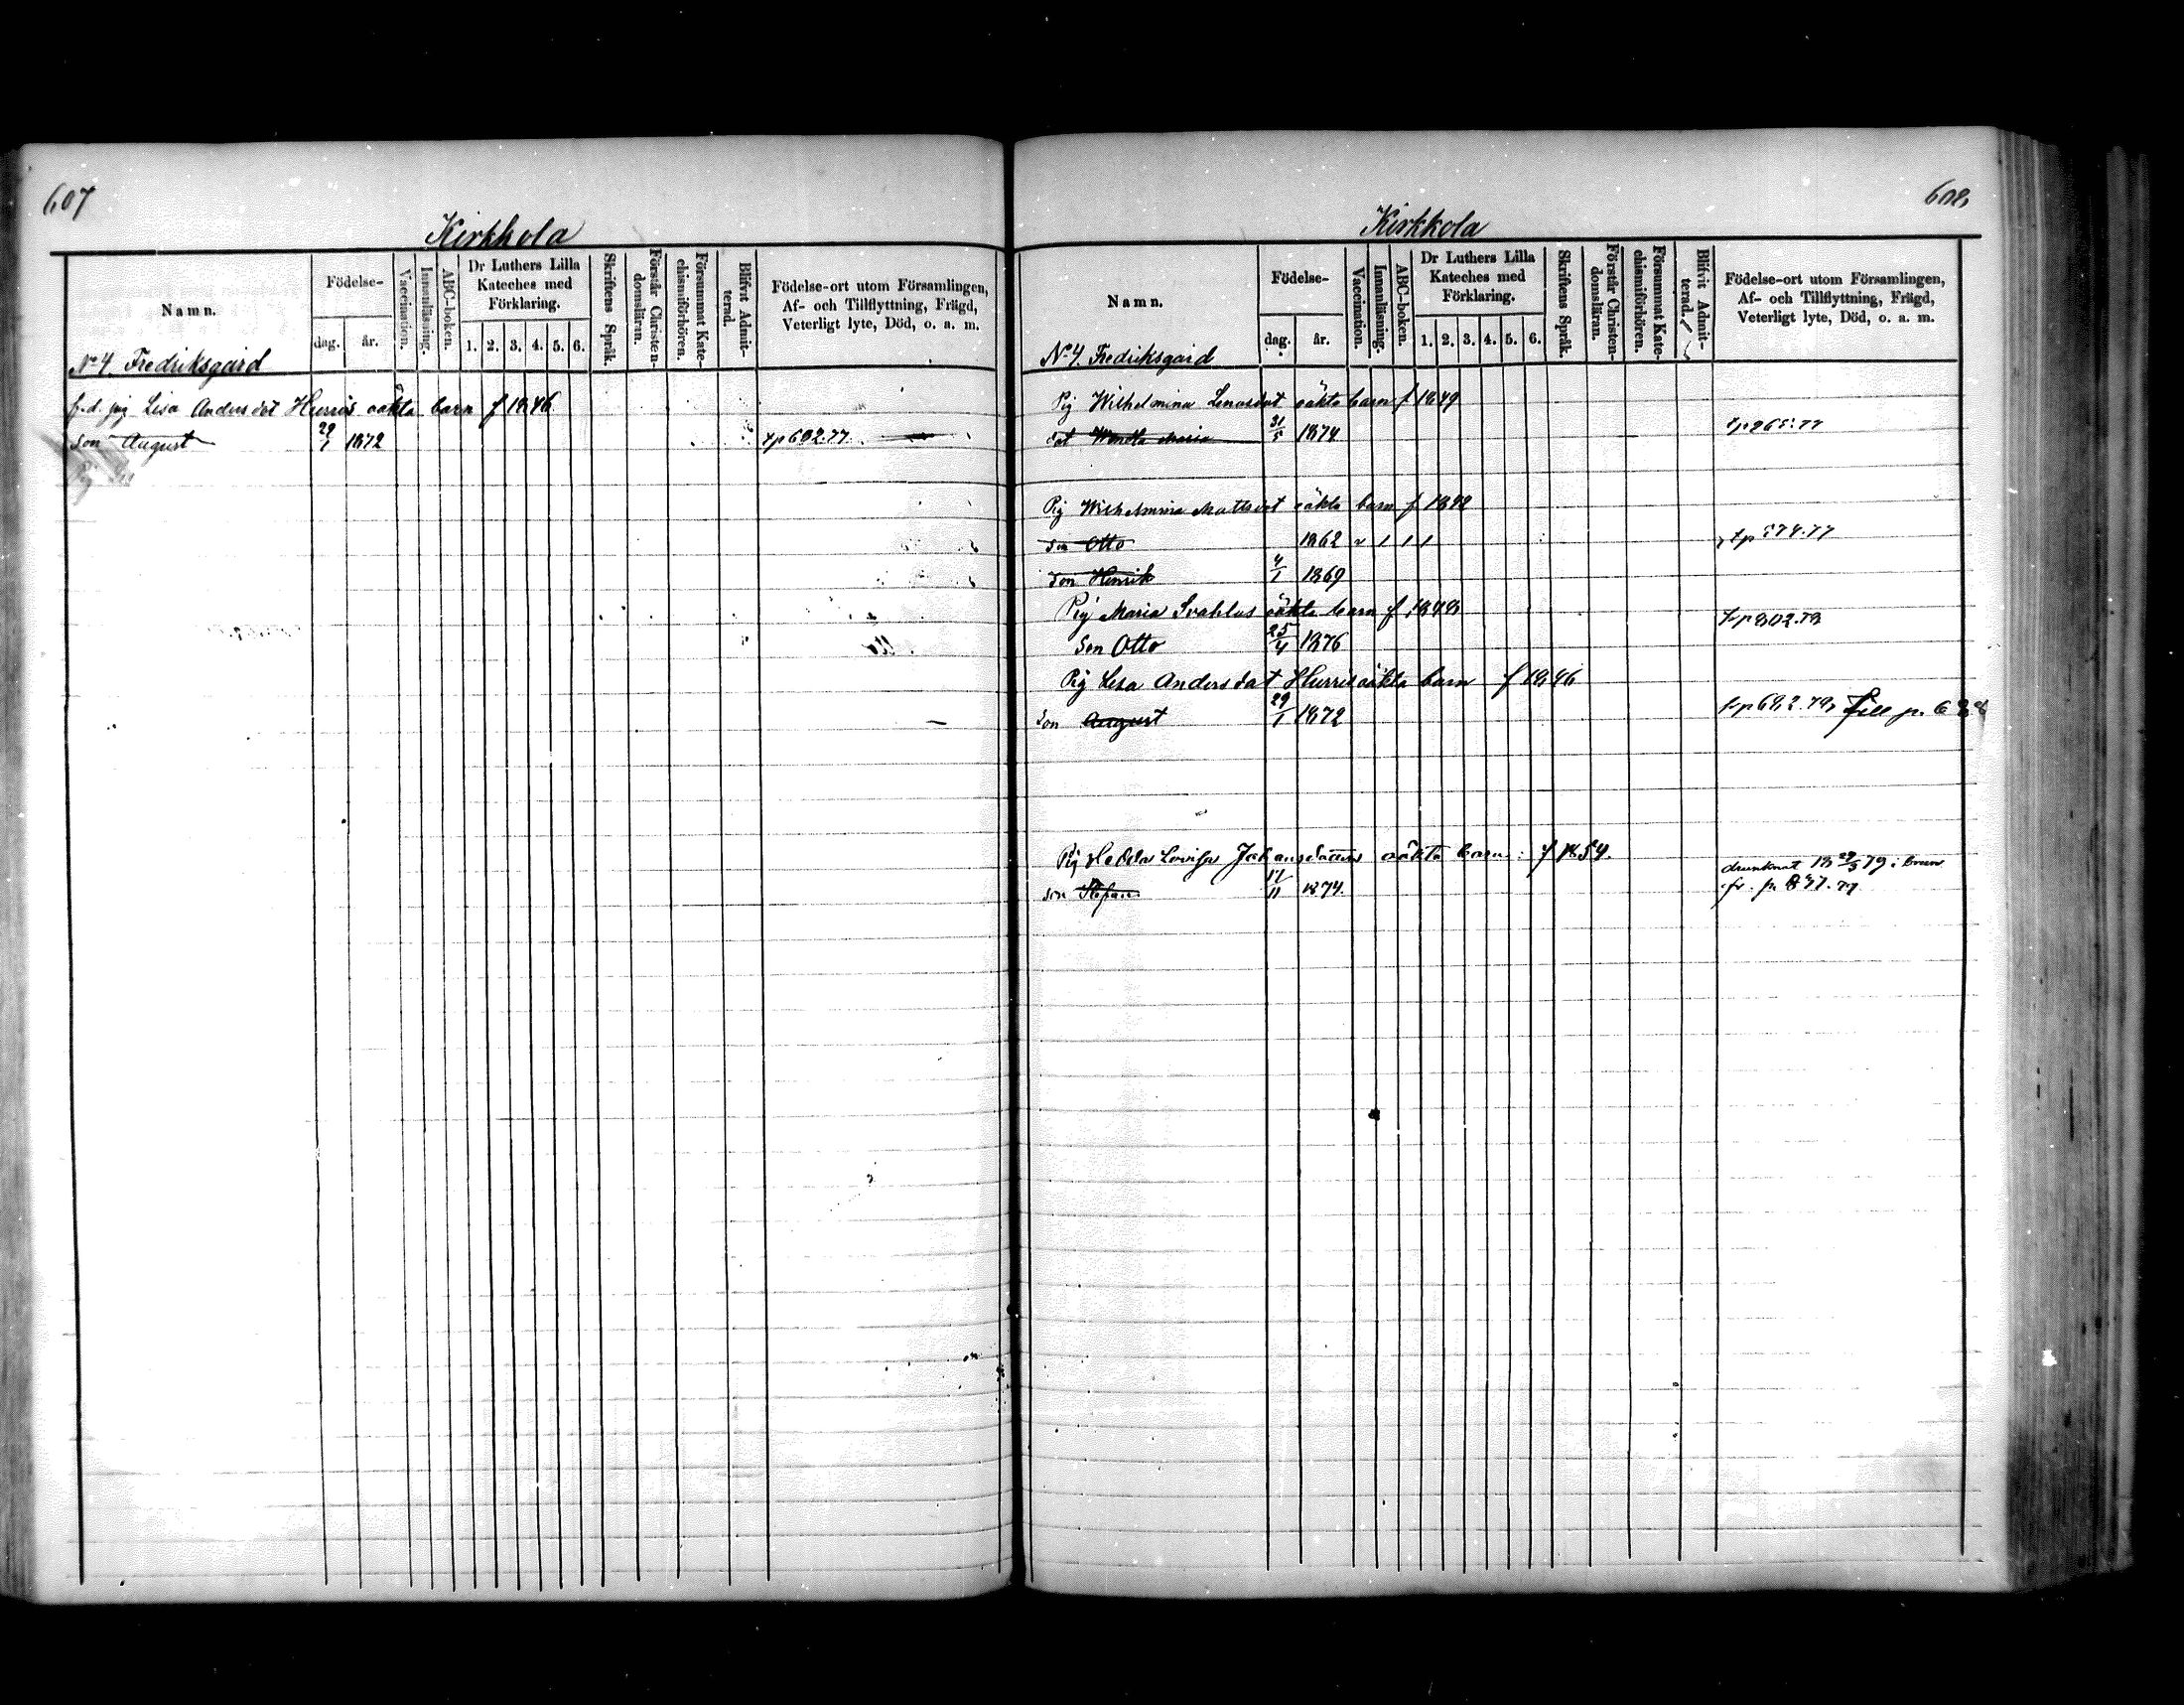 607
Kirkkola
Namn.
Födelse-
dag.
år.
Vaccination.
Innanläsning.
ABC-boken.
Dr Luthers Lilla
Kateches med
Förklaring.
1. 2. 3. 4. 5. 6.
Skriftens Språk.
Förstår Christen-
domsläran.
Försummat Kate-
chismiförhören.
Blifvit Admit-
terad.
Födelse-ort utom Församlingen,
Af- och Tillflyttning, Frägd,
Veterligt lyte, Död, o. a. m.
No 4. Fredriksgård
f.d. pig Lisa Andersdot Hurris oäkta barn f 1846
son August 29/1 1872 tp 692.77
Pig
608
Kirkkola
Namn.
Födelse-
dag.
år.
Vaccination.
Innanläsning.
ABC-boken.
Dr Luthers Lilla
Kateches med
Förklaring.
1. 2. 3. 4. 5. 6.
Skriftens Språk.
Förstår Christen-
domsläran.
Försummat Kate-
chismiförhören.
Blifvit Admit-
terad.
Födelse-ort utom Församlingen,
Af- och Tillflyttning, Frägd,
Veterligt lyte, Död, o. a. m.
No 4. Fredriksgård
Pig Wilhelmina oäkta barn f 1849
dat Wendla Maria 31/5 1874 tp 265.77
Pig Wilhelmina Mattsdot oäkta barn f 1842
son Otto 1862 v 1 1 1 tp 574.77
son Henrik 4/1 1869
Pig Maria oäkta barn f 1848
Son Otto 25/4 1876 tp 802.78
Pig Lisa Andersdot Hurris oäkta barn f 1846
Son August 29/1 1872 tp 692.79, Till p.
Pig Hedda Lovisa oäkta barn: f 1854.
drunknat 18 29/3 79 i
son Stefan 17/11 1874. fr. p. 877.77